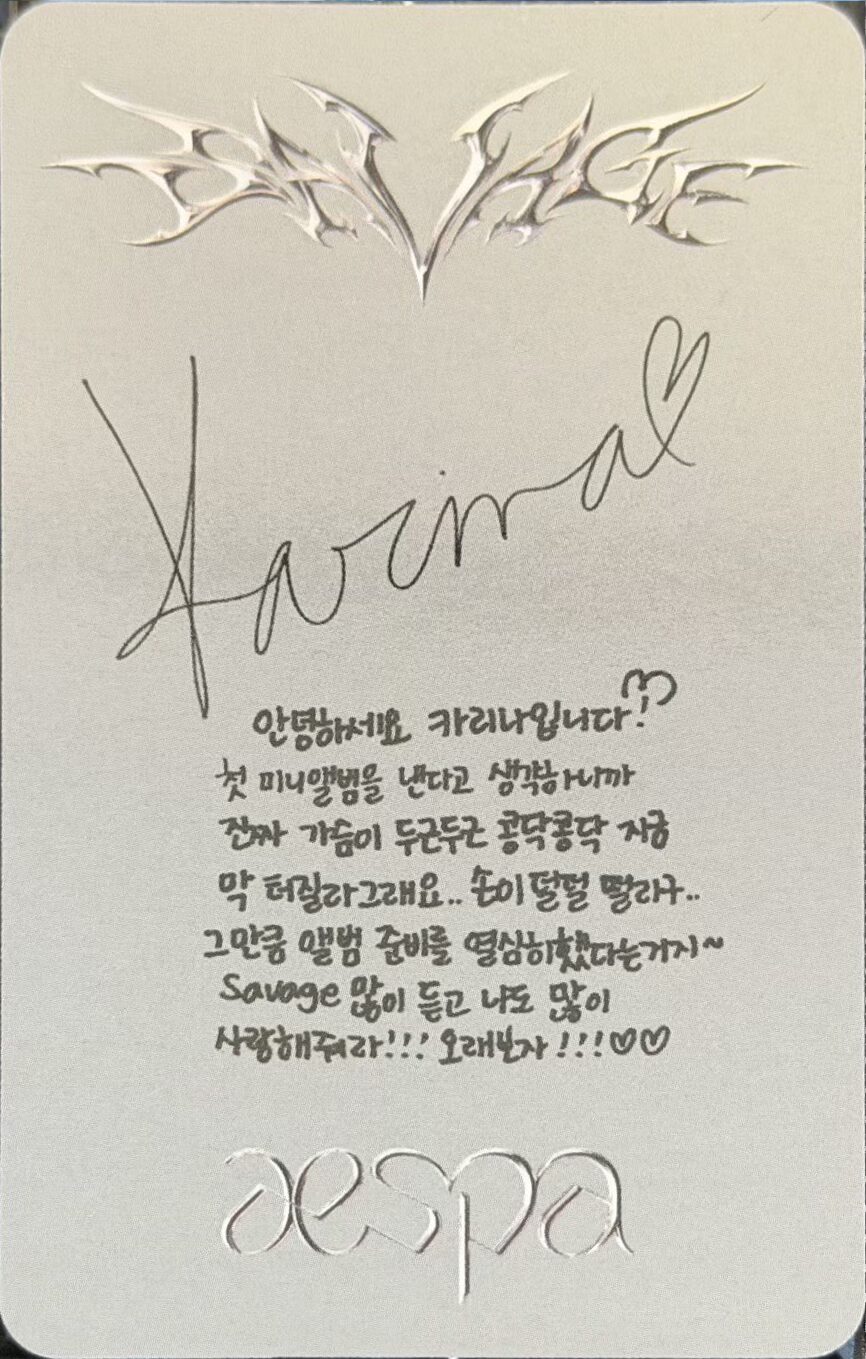 SAVAGE
Karina♡
안녕하세요 카리나입니다!♡
첫 미니앨범을 낸다고 생각하니까
진짜 가슴이 두근두근 콩닥콩닥 지금
막 터질라그래요.. 손이 덜덜 떨리구..
그만큼 앨범 준비를 열심히했다는거지~
Savage 많이 듣고 나도 많이
사랑해줘라!!! 오래보자!!!♡♡
aespa